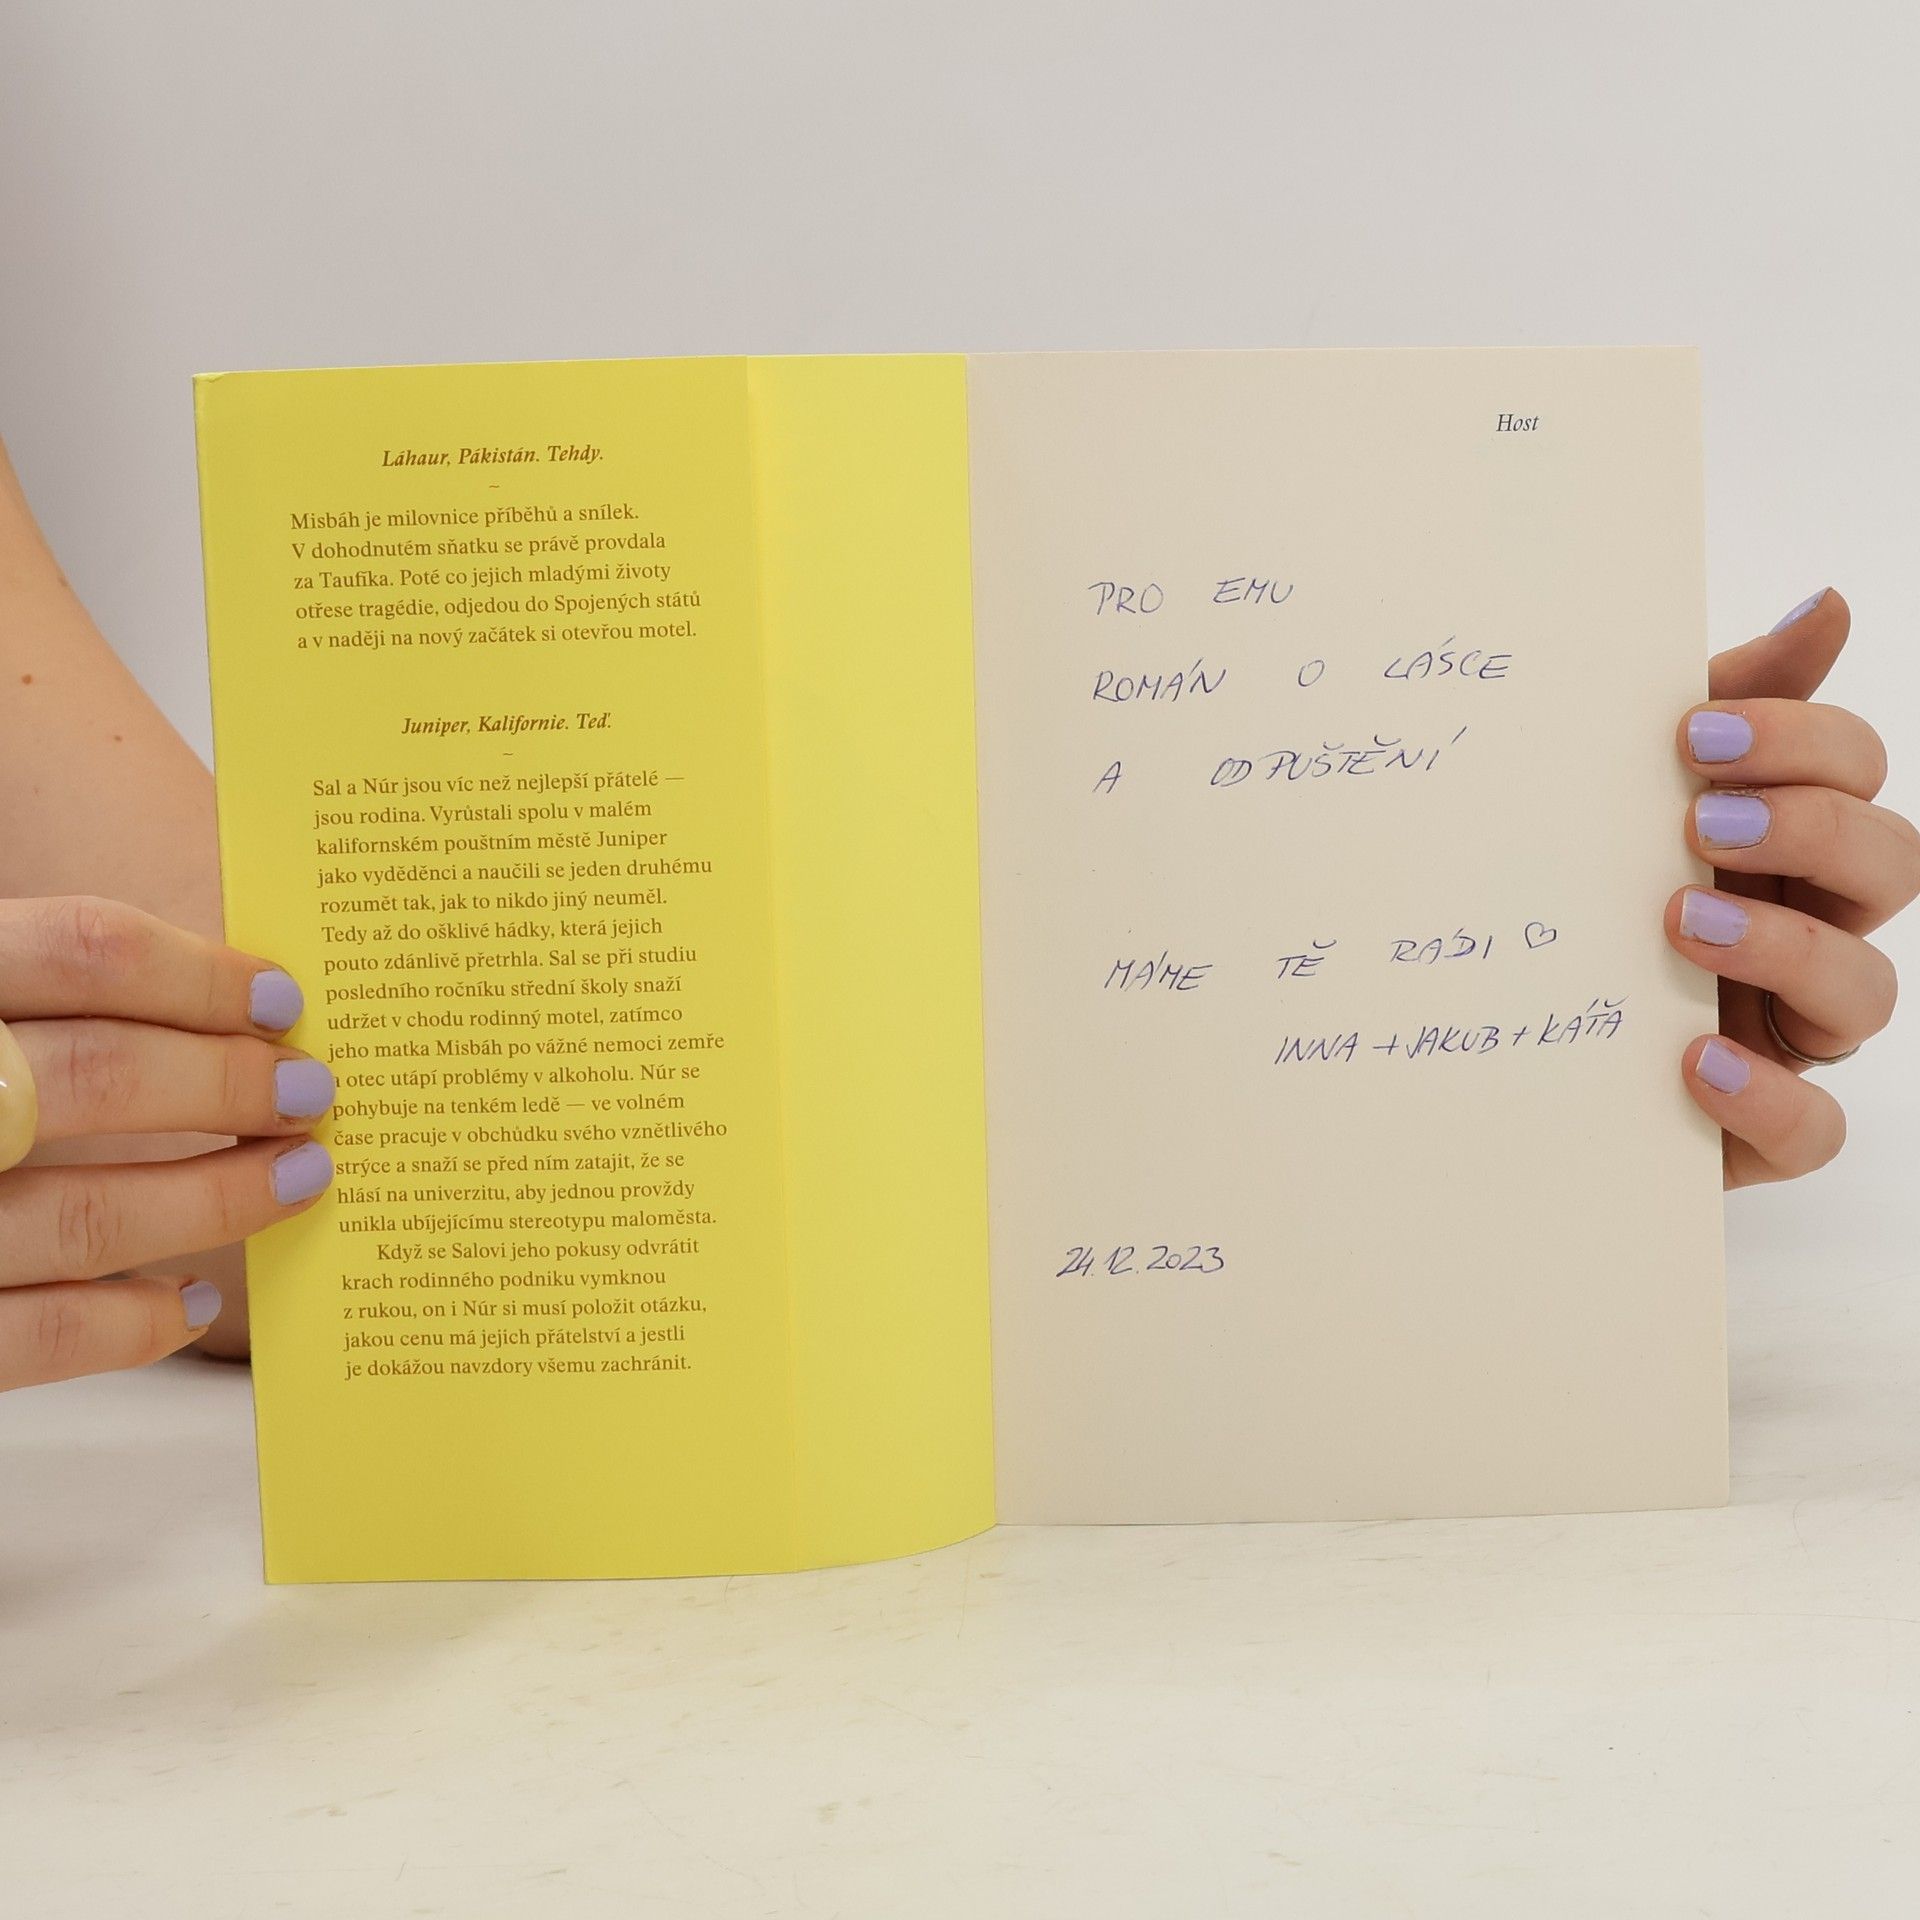 Láhaur, Pákistán. Tehdy.
~
Misbáh je milovnice příběhů a snílek.
V dohodnutém sňatku se právě provdala
za Taufíka. Poté co jejich mladými životy
otřese tragédie, odjedou do Spojených států
a v naději na nový začátek si otevřou motel.
Juniper, Kalifornie. Teď.
~
Sal a Núr jsou víc než nejlepší přátelé —
jsou rodina. Vyrůstali spolu v malém
kalifornském pouštním městě Juniper
jako vyděděnci a naučili se jeden druhému
rozumět tak, jak to nikdo jiný neuměl.
Tedy až do ošklivé hádky, která jejich
pouto zdánlivě přetrhla. Sal se při studiu
posledního ročníku střední školy snaží
udržet v chodu rodinný motel, zatímco
jeho matka Misbáh po vážné nemoci zemře
a otec utápí problémy v alkoholu. Núr se
pohybuje na tenkém ledě — ve volném
čase pracuje v obchůdku svého vznětlivého
strýce a snaží se před ním zatajit, že se
hlásí na univerzitu, aby jednou provždy
unikla ubíjejícímu stereotypu maloměsta.
Když se Salovi jeho pokusy odvrátit
krach rodinného podniku vymknou
z rukou, on i Núr si musí položit otázku,
jakou cenu má jejich přátelství a jestli
je dokážou navzdory všemu zachránit.
Host
PRO EMU
ROMÁN O LÁSCE
A ODPUŠTĚNÍ
MÁME TĚ RÁDI ♡
INNA + JAKUB + KÁŤA
24.12.2023